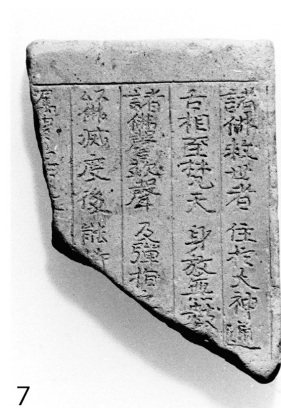 諸佛救世者 住於大神通
舌相至梵天 身放無數
諸佛謦欬聲 及彈指
以佛滅度後 能持
囑累
7